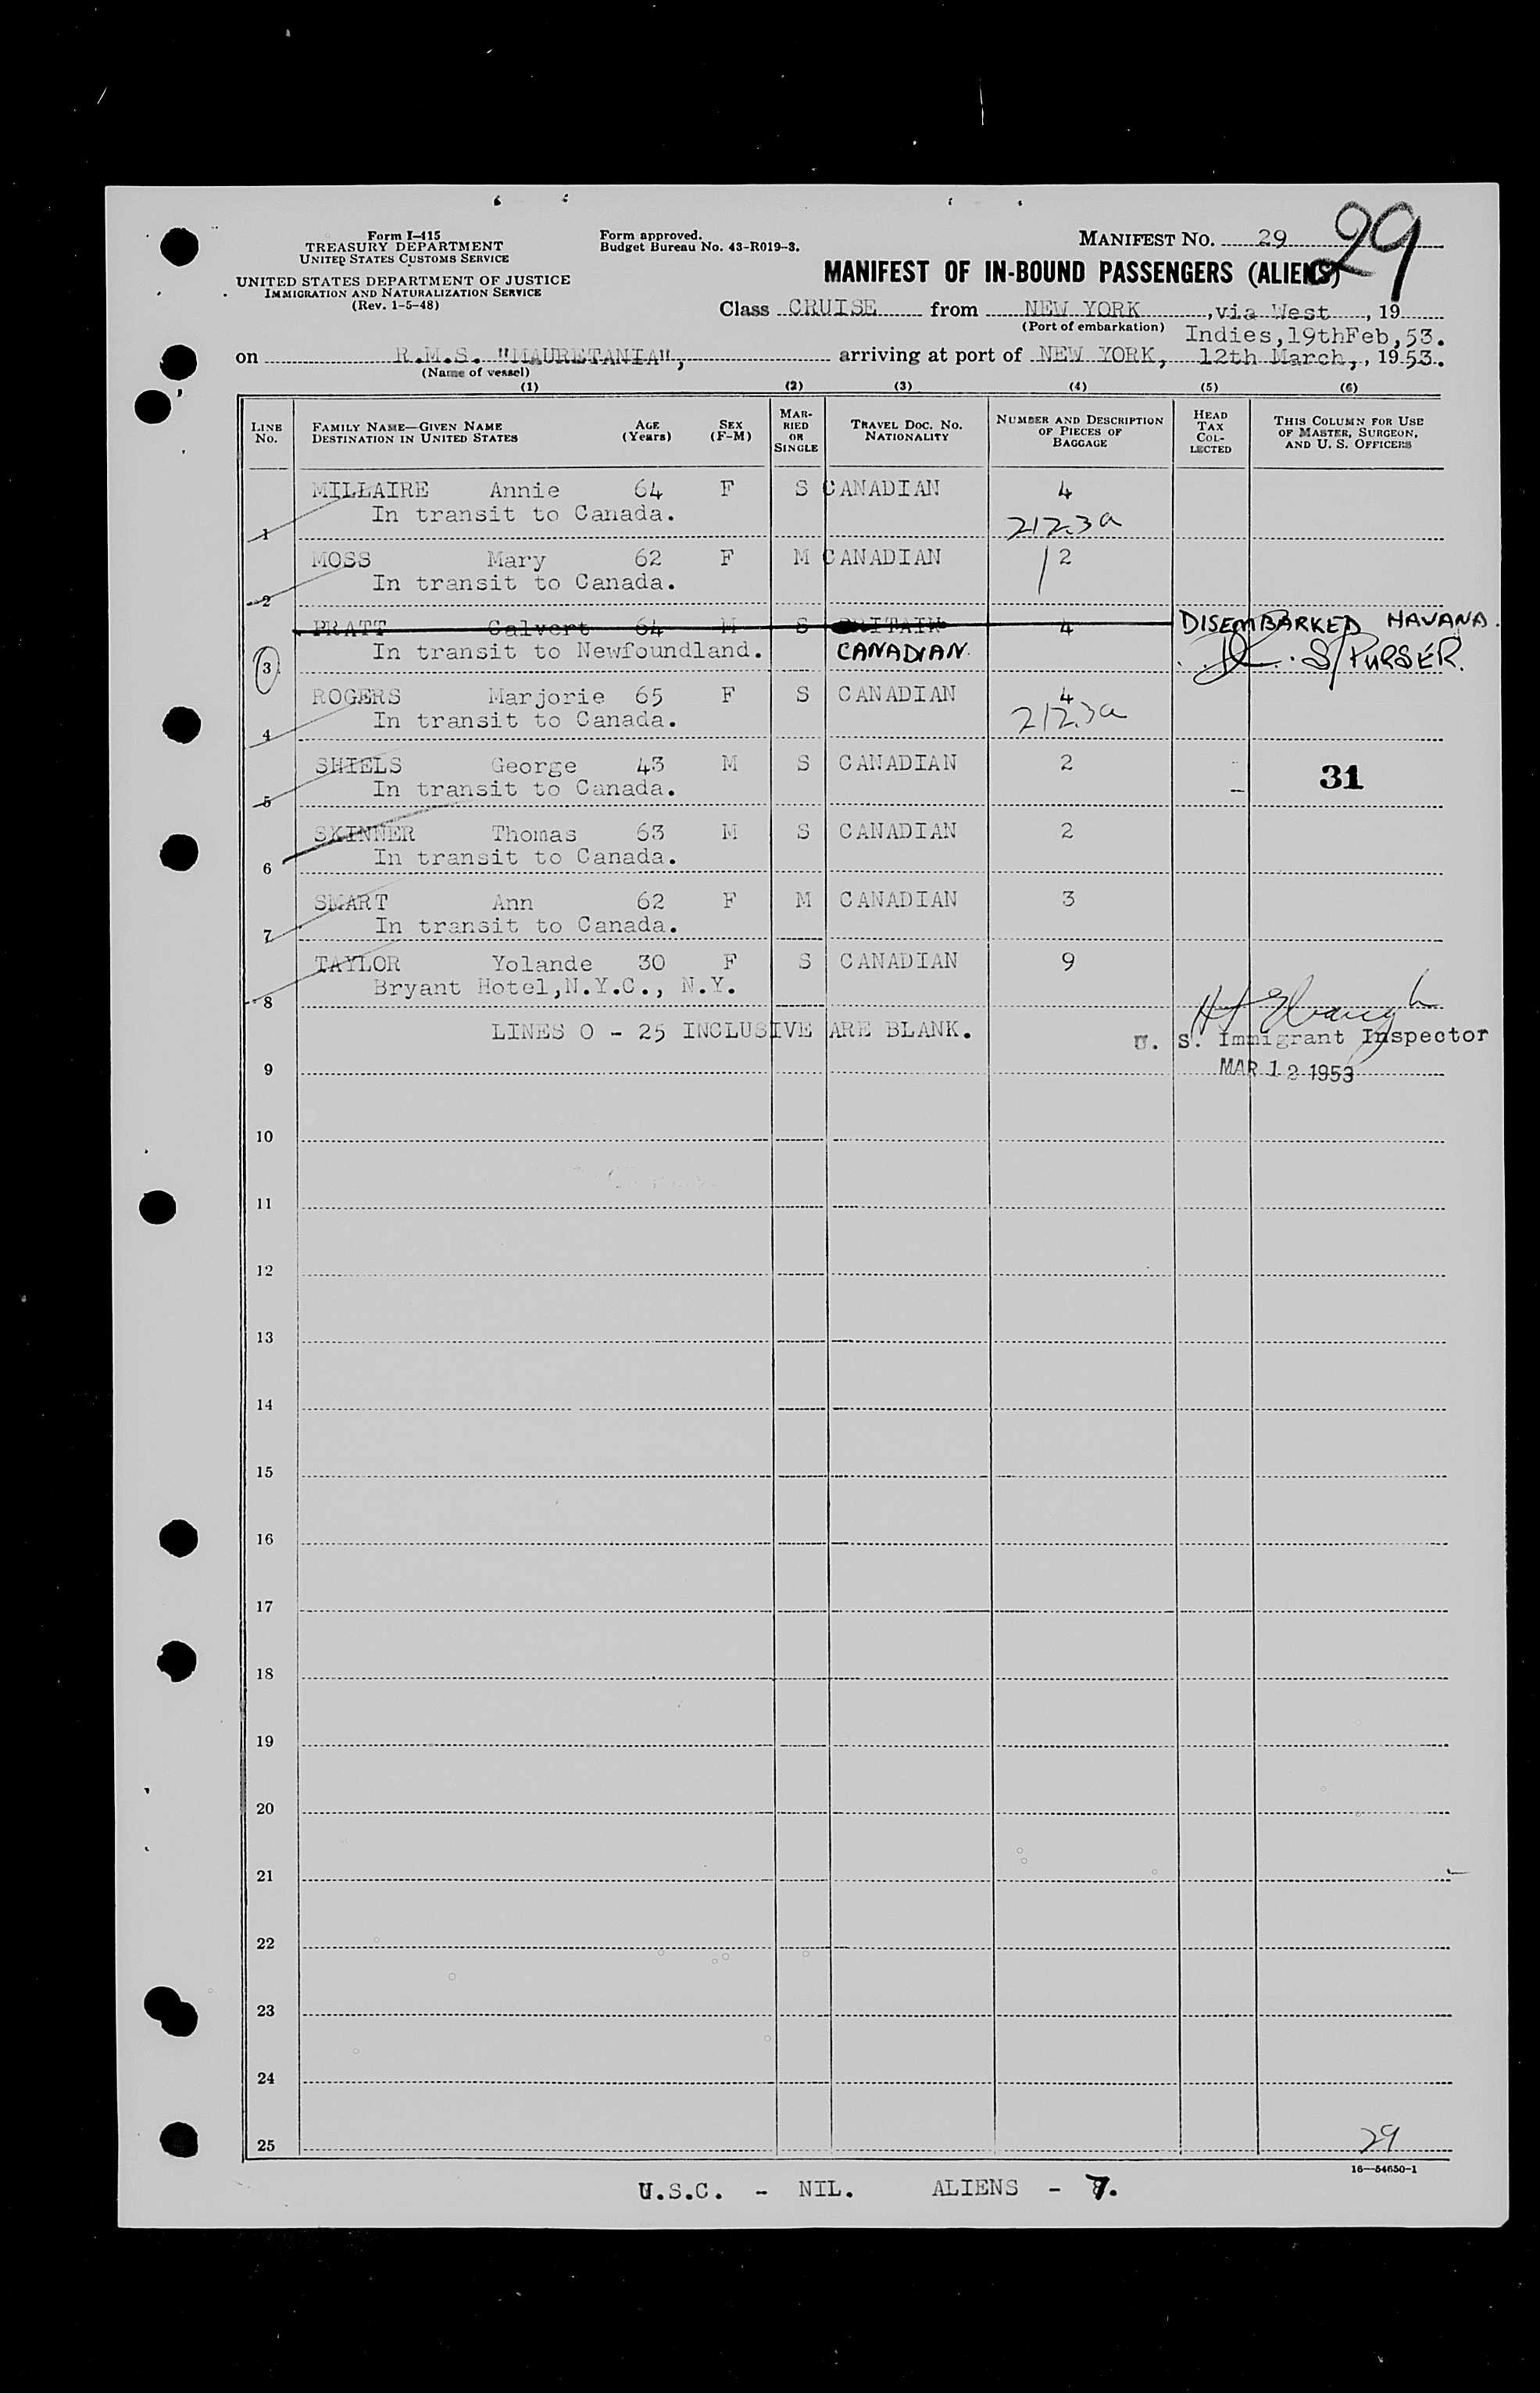 Form I-415
TREASURY DEPARTMENT
UNITED STATES CUSTOMS SERVICE
UNITED STATES DEPARTMENT OF JUSTICE
IMMIGRATION AND NATURALIZATION SERVICE
(Rev. 1-5-48)
Form approved.
Budget Bureau No. 43-R019-3.
MANIFEST NO. 29
29
MANIFEST OF IN-BOUND PASSENGERS (ALIENS)
Class CRUISE from NEW YORK, via West, 19
(Port of embarkation) Indies,19thFeb,53.
on R.M.S. "MAURETANIA", arriving at port of NEW YORK, 12th March,, 1953.
(Name of vessel)
(1) (2) (3) (4) (5) (6)
LINE NO. FAMILY NAME—GIVEN NAME DESTINATION IN UNITED STATES AGE (Years) SEX (F-M) MARRIED OR SINGLE TRAVEL DOC. NO. NATIONALITY NUMBER AND DESCRIPTION OF PIECES OF BAGGAGE HEAD TAX COLLECTED THIS COLUMN FOR USE OF MASTER, SURGEON, AND U. S. OFFICERS
MILLAIRE Annie 64 F S CANADIAN 4
In transit to Canada.
1 212.3a
MOSS Mary 62 F M CANADIAN 2
In transit to Canada.
2
PRATT Calvert 64 M S BRITAIN 4 DISEMBARKED HAVANA.
3 In transit to Newfoundland. CANADIAN. S/PURSER.
ROGERS Marjorie 65 F S CANADIAN 4
In transit to Canada. 212.3a
4
SHIELS George 43 M S CANADIAN 2 31
In transit to Canada.
5
SKINNER Thomas 63 M S CANADIAN 2
In transit to Canada.
6
SMART Ann 62 F M CANADIAN 3
In transit to Canada.
7
TAYLOR Yolande 30 F S CANADIAN 9
Bryant Hotel,N.Y.C., N.Y.
8
LINES 0 - 25 INCLUSIVE ARE BLANK.
U. S. Immigrant Inspector
9 MAR 12 1953
10
11
12
13
14
15
16
17
18
19
20
21
22
23
24
25 29
16—54650-1
U.S.C. - NIL. ALIENS - 7.